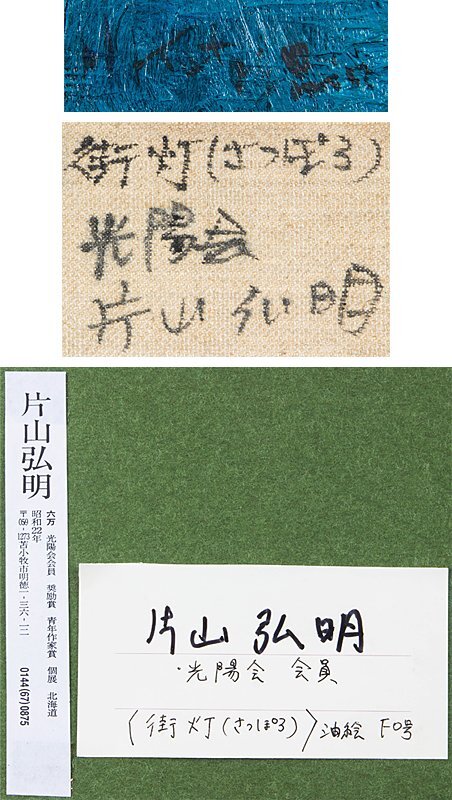 街灯(さっぽろ)
光陽会
片山弘明
片山弘明
六万 光陽会会員 奨励賞 青年作家賞 個展 北海道
昭和22年
〒059-1273苫小牧市明徳一-三六-一二
0144(67)0875
片山弘明
・光陽会 会員
〈街灯(さっぽろ)〉油絵 F0号